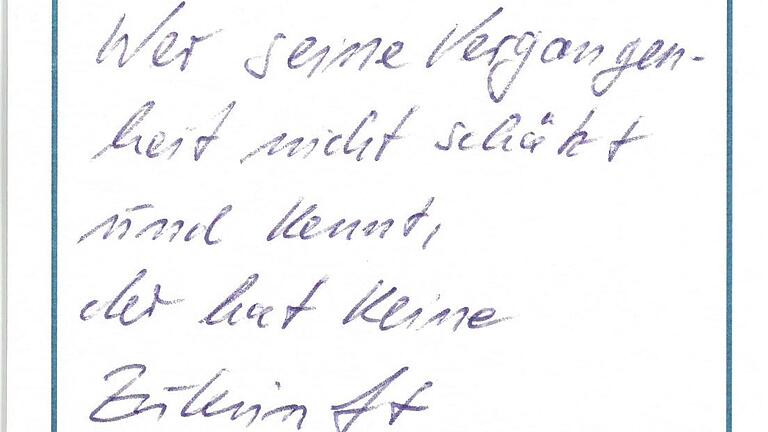 Wer seine Vergangen-
heit nicht schätzt
und kennt,
der hat keine
Zukunft